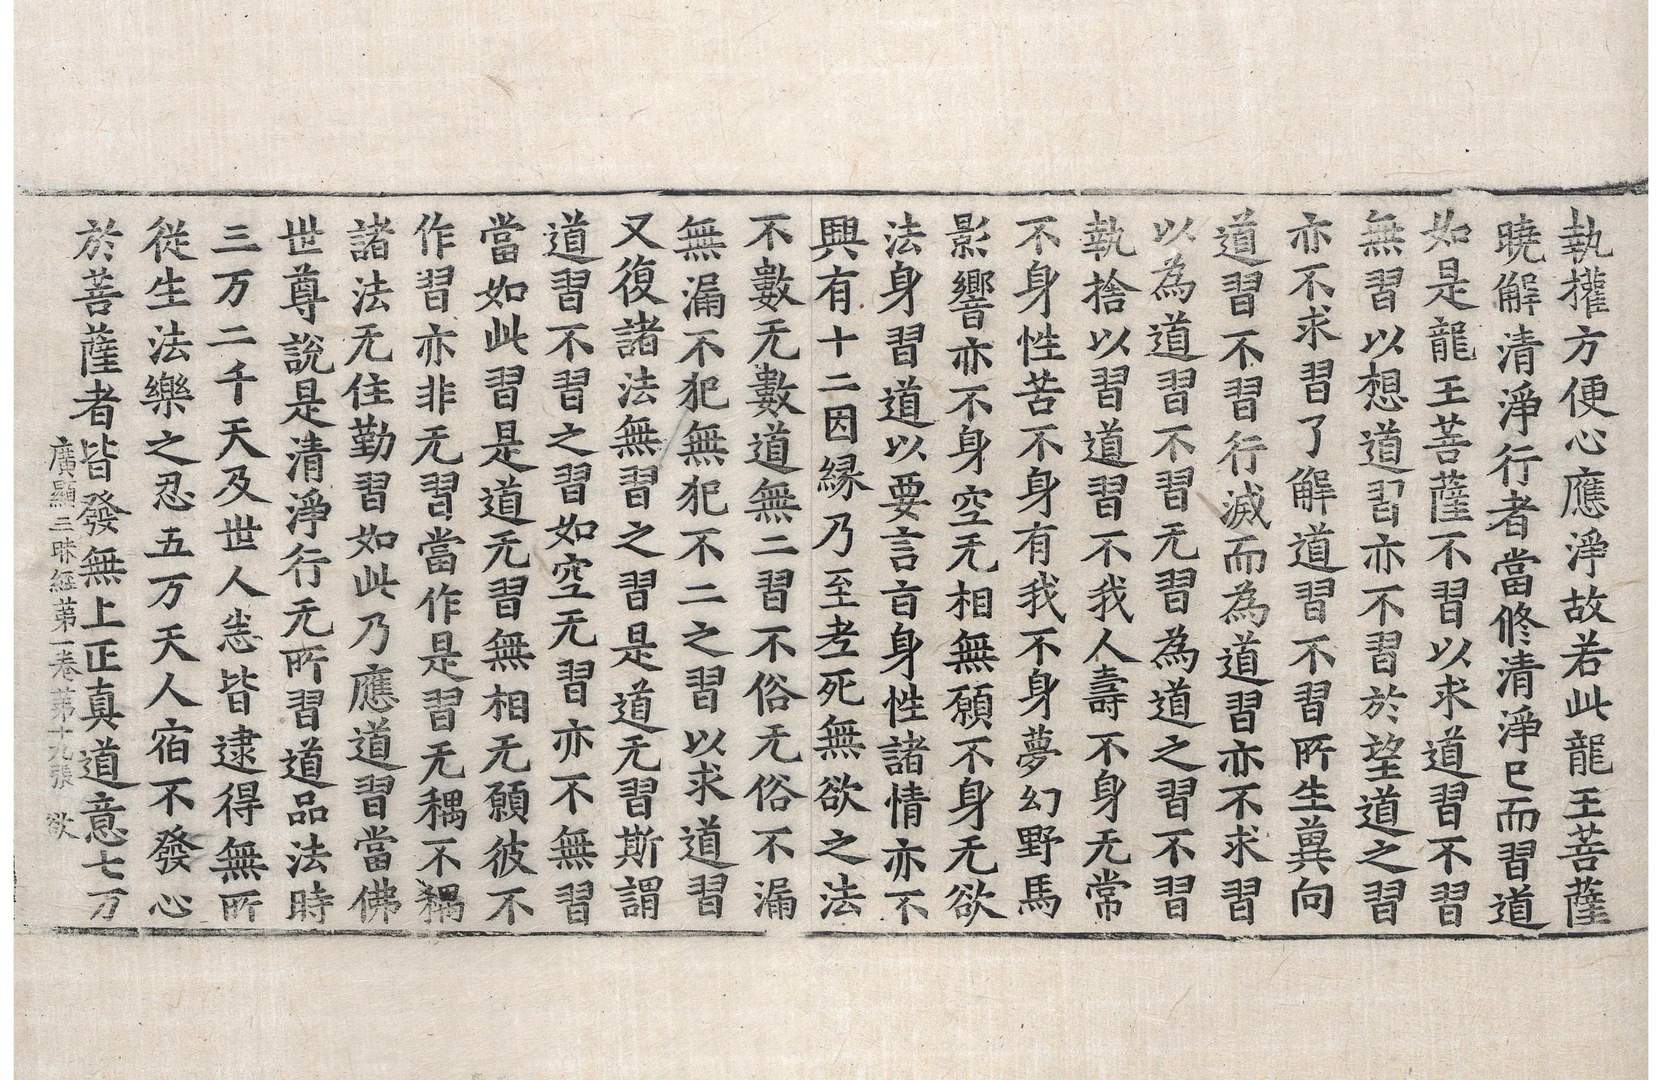 執權方便心應淨故若此龍王菩薩
曉解清淨行者當修清淨已而習道
如是龍王菩薩不習以求道習不習
無習以想道習亦不習於望道之習
亦不求習了解道習不習所生䔬向
道習不習行滅而為道習亦不求習
以為道習不習无習為道之習不習
執捨以習道習不我人壽不身无常
不身性苦不身有我不身夢幻野馬
影響亦不身空无相無願不身无欲
法身習道以要言言身性諸情亦不
興有十二因緣乃至老死無欲之法
不數无數道無二習不俗无俗不漏
無漏不犯無犯不二之習以求道習
又復諸法無習之習是道无習斯謂
道習不習之習如空无習亦不無習
當如此習是道无習無相无願彼不
作習亦非无習當作是習无稱不稱
諸法无住勤習如此乃應道習當佛
世尊說是清淨行无所習道品法時
三万二千天及世人悉皆逮得無所
從生法樂之忍五万天人宿不發心
於菩薩者皆發無上正真道意七万
廣顯三昧経苐一卷苐十九張 欲